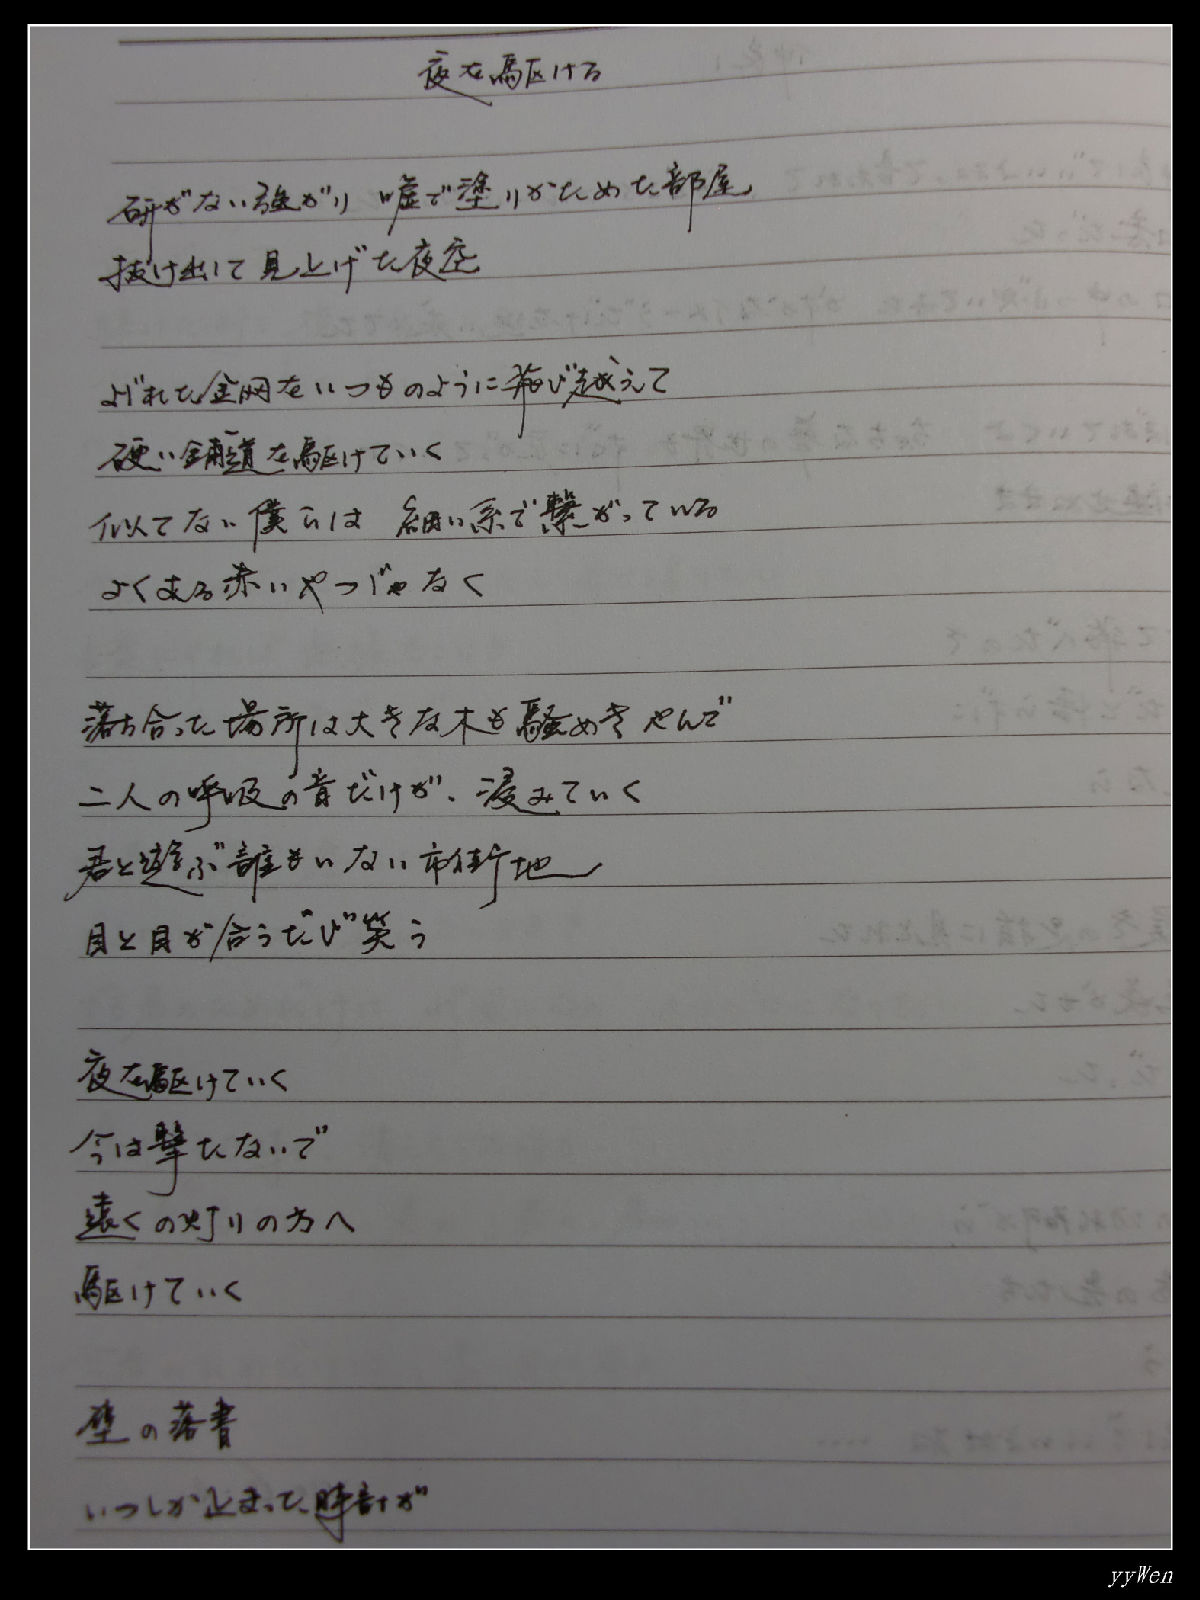 夜を駆ける
研がない強がり 嘘で塗りかためた部屋
抜け出して見上げた夜空
よじれた金網をいつものように飛び越えて
硬い舗道を駆けていく
似てない僕らは 細い糸で繋がっている
よくある赤いやつじゃなく
落ち合った場所は大きな木も騒めきやんで
二人の呼吸の音だけが、浸みていく
君と遊ぶ誰もいない市街地
目と目が合うたび笑う
夜を駆けていく
今は撃たないで
遠くの灯りの方へ
駆けていく
壁の落書
いつしか止まった時計が
yyWen